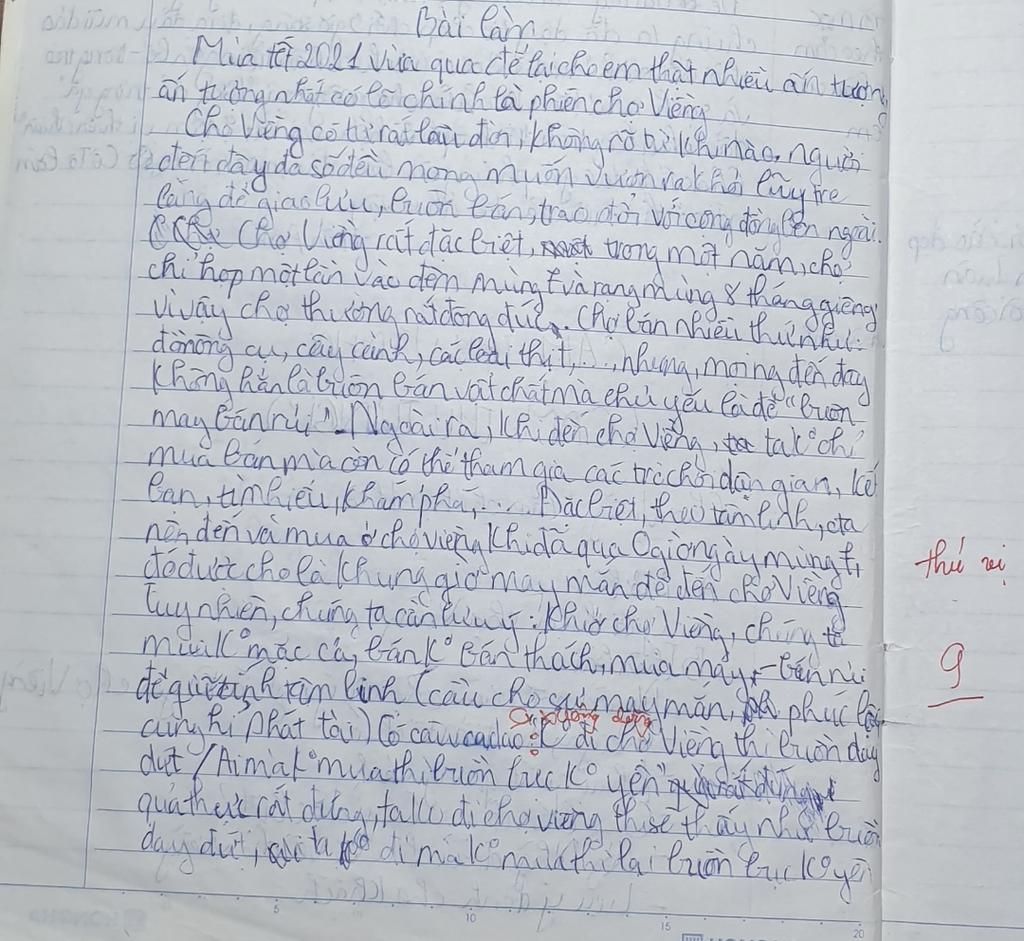 Bài làm
Mùa tết 2021 vừa qua để lại cho em thật nhiều ấn tượng,
ấn tượng nhất có lẽ chính là phiên chợ Viềng
Chợ Viềng có từ rất lâu đời, không rõ từ khi nào, người
đến đây đa số đều mong muốn vươn ra khỏi lũy tre
làng để giao lưu, buôn bán, trao đổi với cộng đồng bên ngoài.
Chợ Viềng rất đặc biệt, trong một năm, chợ
chỉ họp một lần vào đêm mùng 7 và rạng mùng 8 tháng giêng
vì vậy chợ thường rất đông đúc. Chợ bán nhiều thứ như:
đồ nông cụ, cây cảnh, các loại thịt,..., nhưng, mọi ng đến đây
không hẳn là buôn bán vật chất mà chủ yếu là để "buôn
may bán rủi". Ngoài ra, khi đến chợ Viềng, ta k° chỉ
mua bán mà còn có thể tham gia các trò chơi dân gian, kết
bạn, tìm hiểu, khám phá,... Đặc biệt, theo tâm linh, cta
nên đến và mua ở chợ viềng khi đã qua 0 giờ ngày mùng 7,
đó được cho là khung giờ may mắn để đến chợ Viềng
Tuy nhiên, chúng ta cần lưu ý: khi ở chợ Viềng, chúng ta
mua k° mặc cả, bán k° bán thách, mua may - bán rủi
để giữ tính tâm linh (cầu cho sự may mắn, phúc lộc
cung hỉ phát tài) Có câu ca dao: "K° đi chợ Viềng thì buồn day
dứt / Ai mà k° mua thì buồn bực k° yên"
quả thực rất đúng, ta k° đi chợ viềng thì sẽ thấy nhớ buồn
day dứt, đi mà k° mua thì lại buồn bực k° yên
thú vị
9